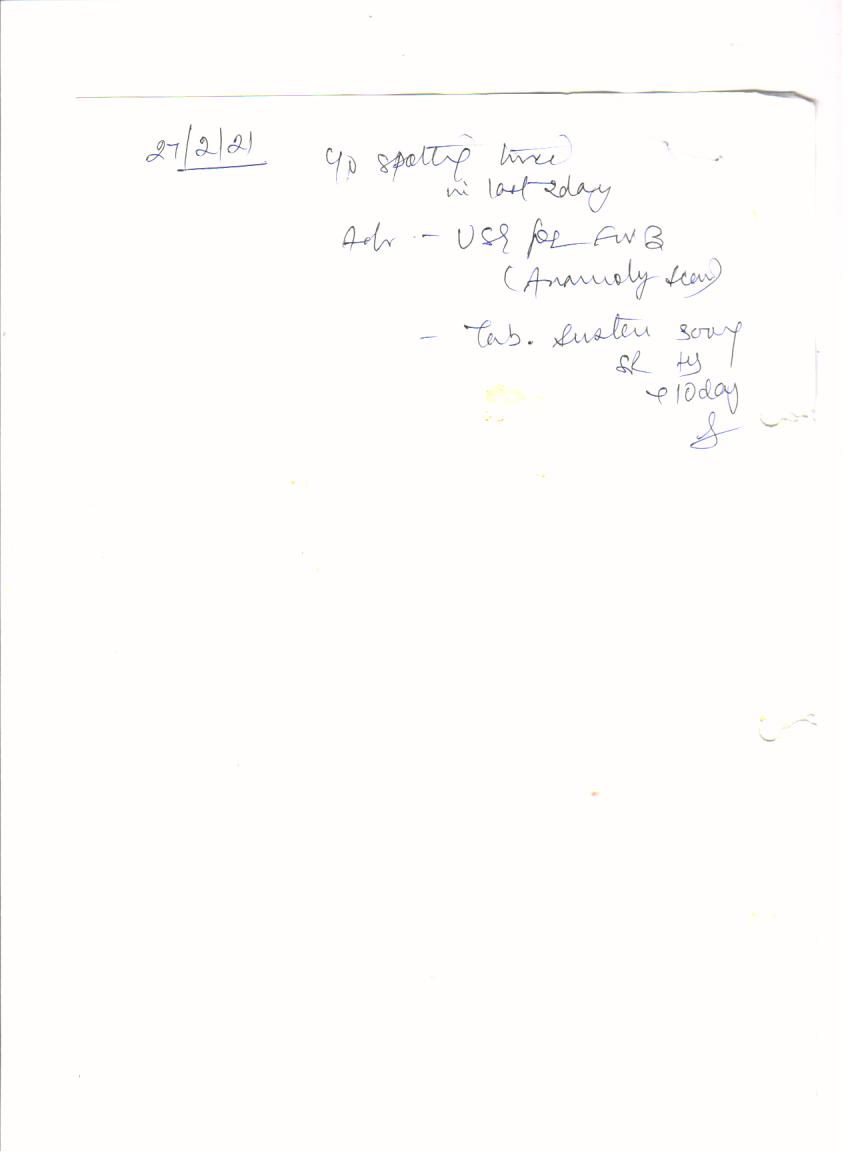 27/2/21 c/o spotting twice
in last 2day
Adv - USG for FWB
(Anamoly scan)
- Tab. Susten 300mg
SR
x 10day